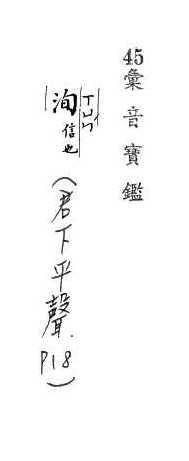 45彙音寶鑑
洵ㄒㄩㄣˊ信也(君下平聲.P18)